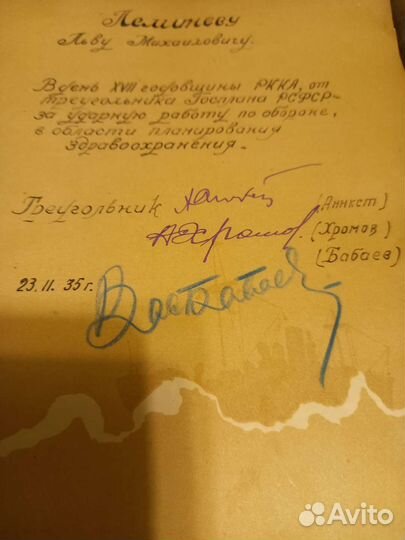 Леминеву
Льву Михайловичу.
В день XVII годовщины РККА, от
треугольника Госплана РСФСР-
за ударную работу по обороне,
в области планирования
здравоохранения.
Треугольник
(Аникст)
АХромов. (Хромов)
(Бабаев)
23.II.35г.
Avito